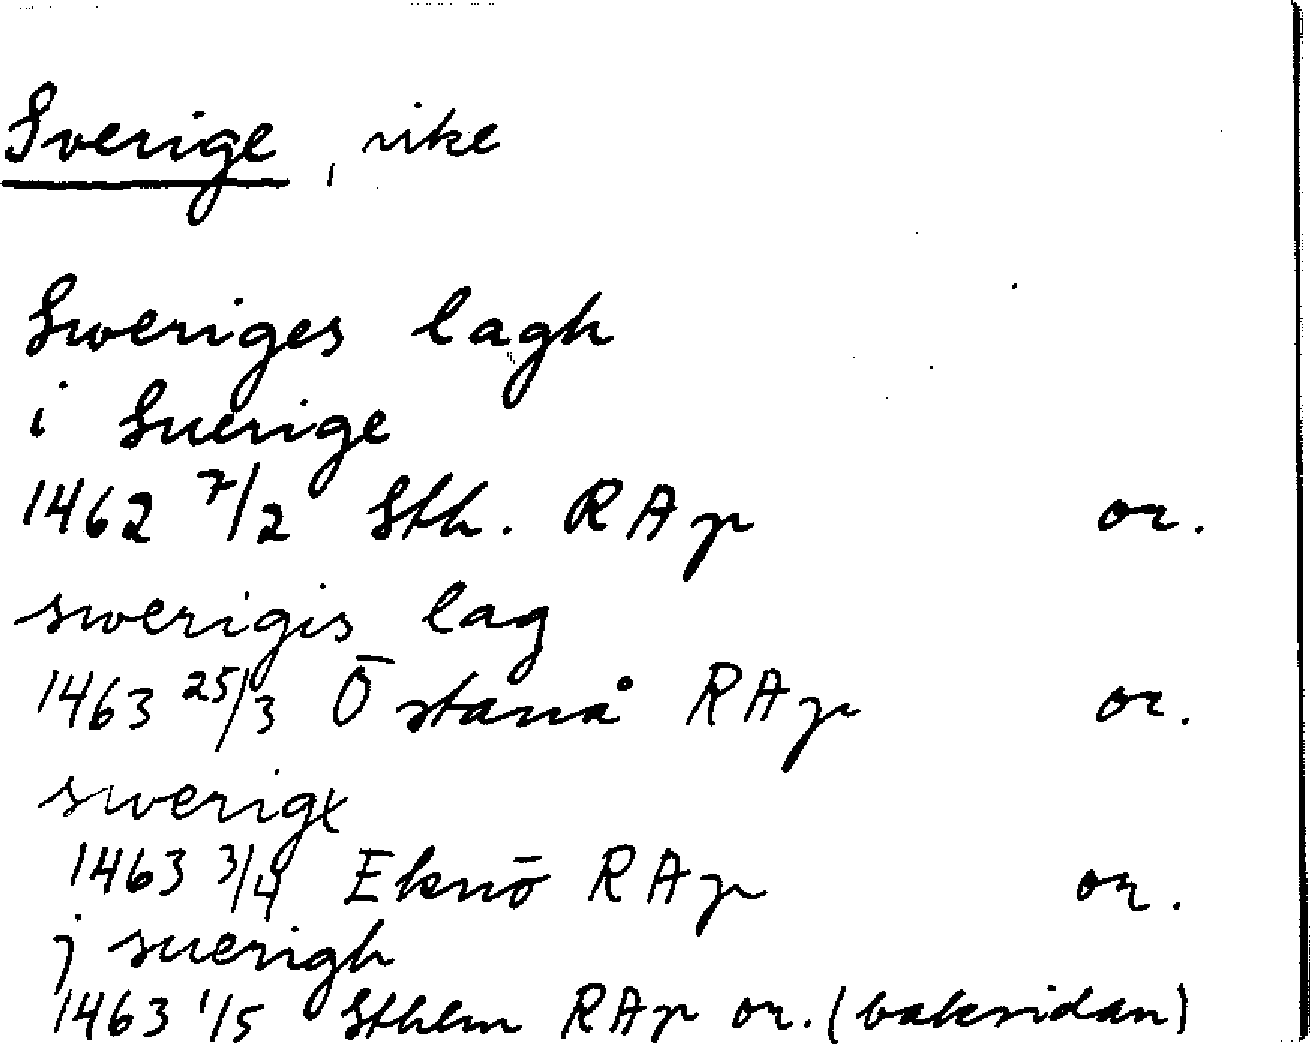 Sverige, rike
Sweriges lagh
i Suerige
1462 7/2 Sth. RAp or.
swerigis lag
1463 25/3 Östanå RAp or.
swerige
1463 3/4 Eknö RAp or.
j suerigh
1463 1/5 Sthlm RAp or. (baksidan)